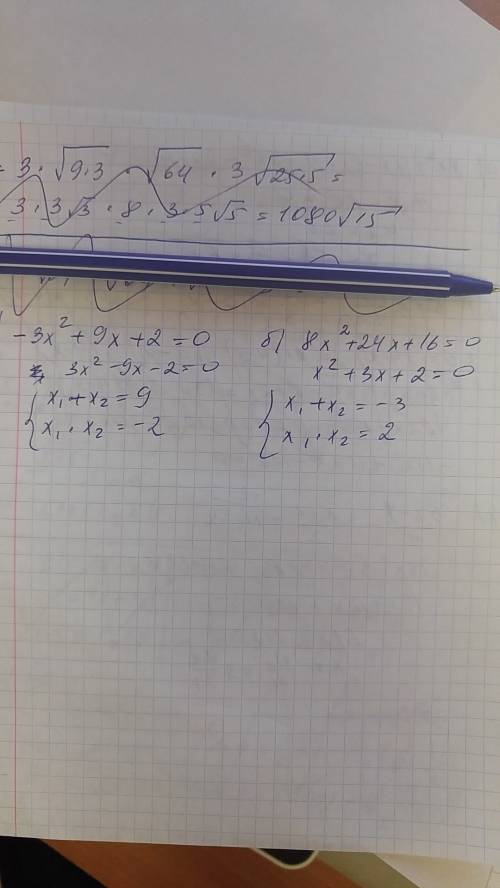 = 3 · √9·3 · √64 · 3√25·5 =
3 · 3√3 · 8 · 3 · 5√5 = 1080√15
-3x² + 9x + 2 = 0
3x² - 9x - 2 = 0
{ x₁ + x₂ = 9
x₁ · x₂ = -2
б) 8x² + 24x + 16 = 0
x² + 3x + 2 = 0
{ x₁ + x₂ = -3
x₁ · x₂ = 2